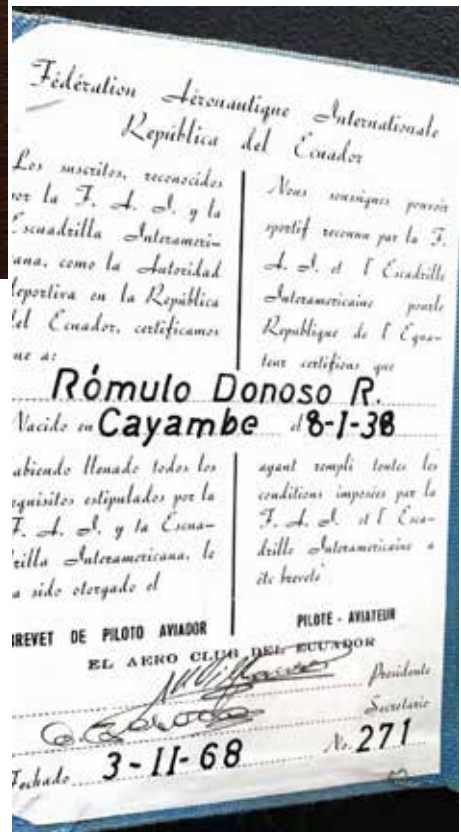 Fédération Aéronautique Internationale
República del Ecuador
Los suscritos, reconocidos
por la F. A. I. y la
Escuadrilla Interameri-
cana, como la Autoridad
deportiva en la República
del Ecuador, certificamos
que a:
Nous sousignes pouvoir
sportif reconnu par la F.
A. I. et l'Escadrille
Interamericaine pourle
Republique de l'Equa-
teur certifions que
Rómulo Donoso R.
Nacido en Cayambe el 8-1-38
habiendo llenado todos los
requisitos estipulados por la
F. A. I. y la Escua-
drilla Interamericana, le
ha sido otorgado el
BREVET DE PILOTO AVIADOR
ayant rempli toutes les
conditions imposées par la
F. A. I. et l'Esca-
drille Interamericaine a
éte breveté
PILOTE - AVIATEUR
EL AERO CLUB DEL ECUADOR
Presidente
Secretario
Fechado 3-11-68 No. 271